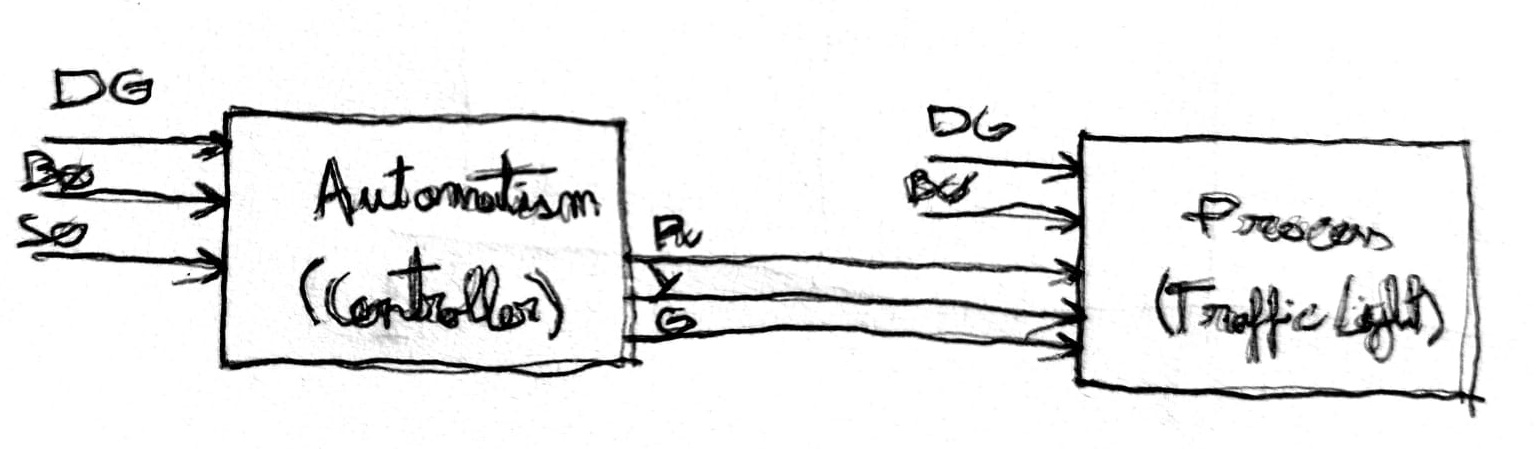 DG
BØ
SØ
Automatism
(Controller)
R
Y
G
DG
BØ
Process
(Traffic Light)